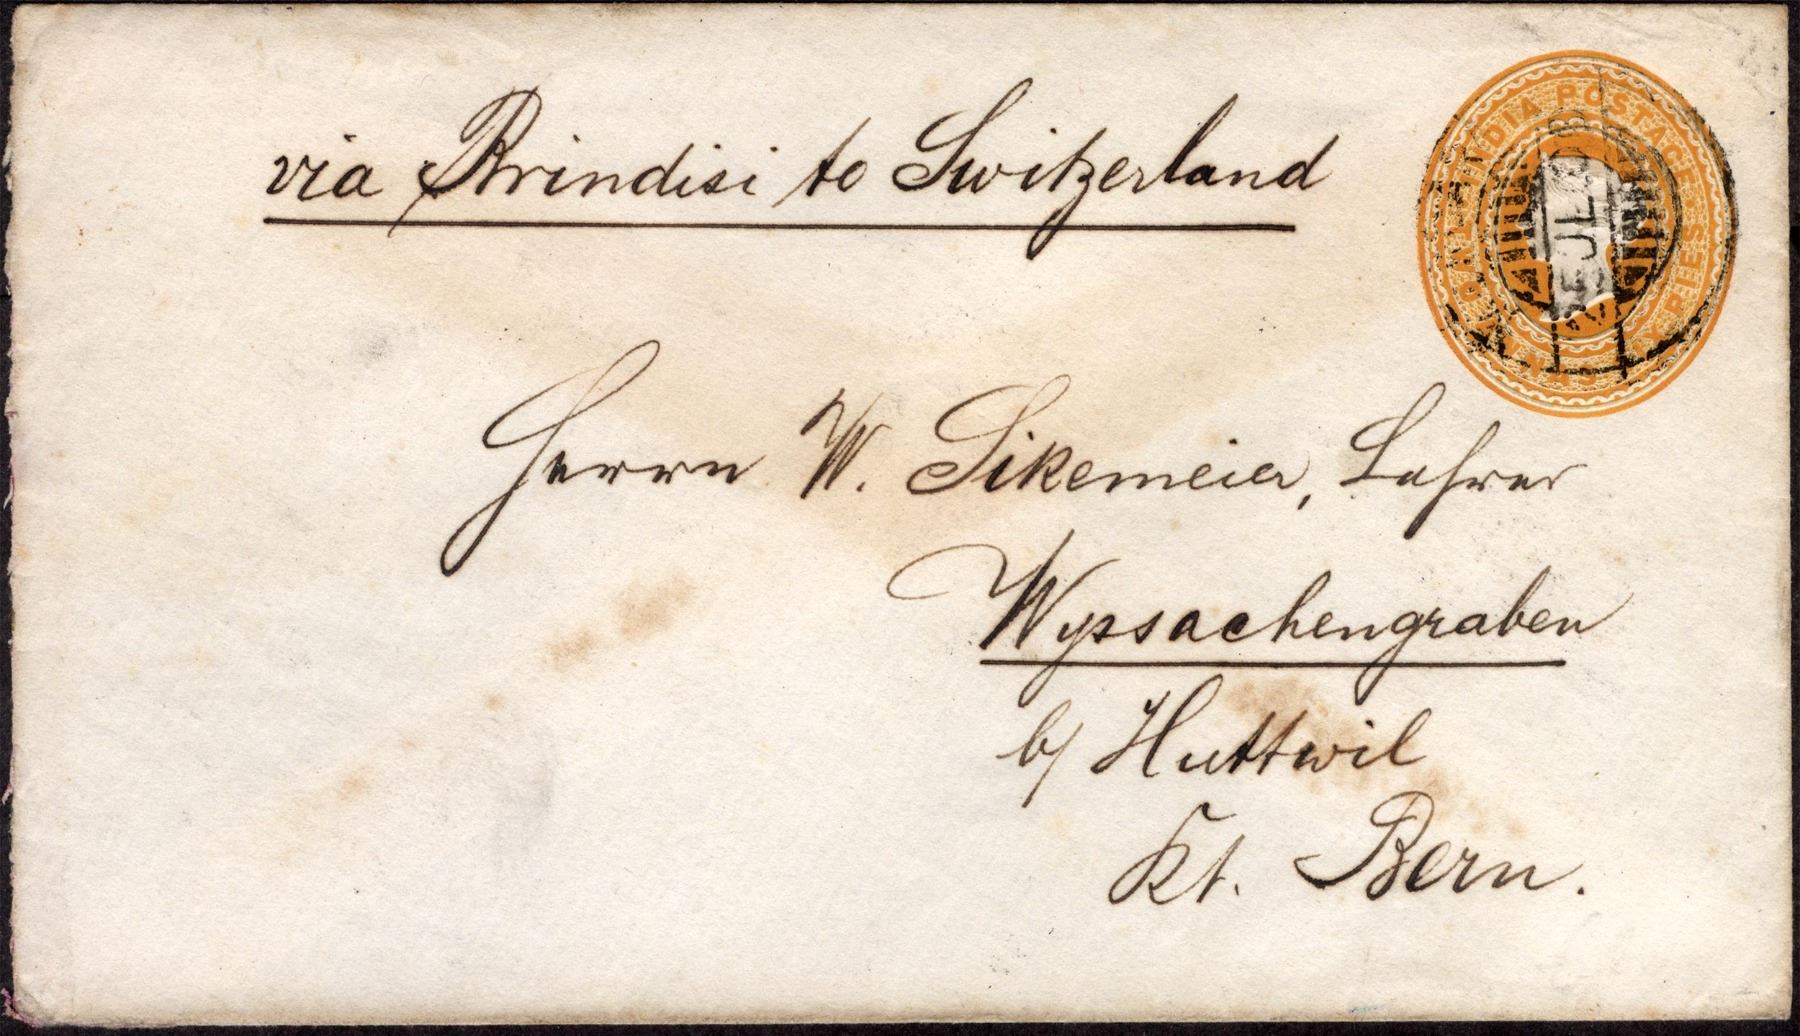 via Brindisi to Switzerland
INDIA POSTAGE
Herrn W. Sikemeier, Lehrer
Wyssachengraben
b/ Huttwil
Kt. Bern.